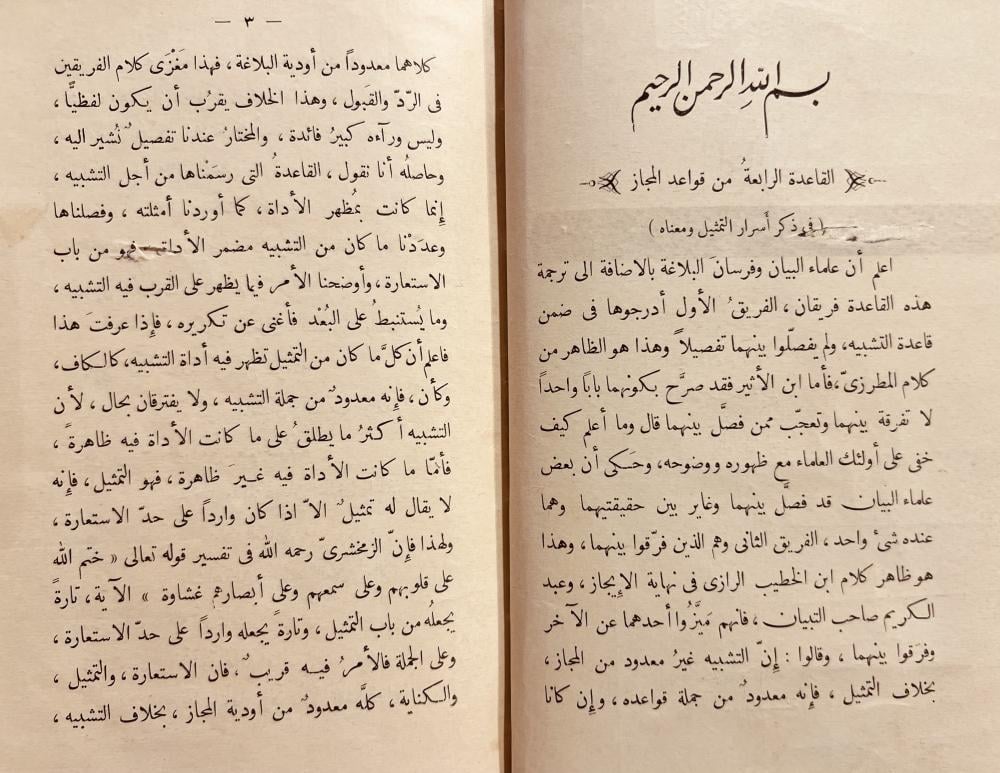 بسم الله الرحمن الرحيم
القاعدة الرابعةُ من قواعد المجاز
( فى ذكر أَسرار التمثيل ومعناه )
اعلم أن علماء البيان وفرسانَ البلاغة بالاضافة الى ترجمة
هذه القاعدة فريقان ، الفريقُ الأول أدرجوها فى ضمن
قاعدة التشبيه، ولم يفصلّوا بينهما تفصيلاً وهذا هو الظاهر من
كلام المطرزىّ، فأما ابن الأثير فقد صرَّح بكونهما باباً واحداً
لا تفرقة بينهما وتعجّب ممن فصلَّ بينهما قال وما أعلم كيف
خفى على أولئك العلماء مع ظهوره ووضوحه، وحَكى أن بعض
علماء البيان قد فصلَّ بينهما وغاير بين حقيقتيهما وهما
عنده شىء واحد ، الفريق الثانى وهم الذين فرّقوا بينهما، وهذا
هو ظاهر كلام ابن الخطيب الرازى فى نهاية الإيجاز، وعبد
الكريم صاحب التبيان ، فانهم مَيَّزُوا أحدهما عن الآخر
وفرَقوا بينهما ، وقالوا : إنّ التشبيه غيرُ معدود من المجاز،
بخلاف التمثيل ، فإنه معدودٌ من جملة قواعده ، وإن كانا
— ٣ —
كلاهما معدوداً من أودية البلاغة ، فهذا مَغْزَى كلام الفريقين
فى الردّ والقَبول ، وهذا الخلاف يقرُب أن يكون لفظيًّا ،
وليس ورآءه كبيرُ فائدة ، والمختارُ عندنا تفصيلٌ نُشير اليه ،
وحاصلُه أنا نقول ، القاعدةُ التى رسَمْناها من أجل التشبيه ،
إنما كانت بمُظهر الأداة ، كما أوردنا أمثلته ، وفصلناها
وعدَدْنا ما كان من التشبيه مضمر الأداة فهو من باب
الاستعارة ، وأوضحنا الأمر فيما يظهر على القرب فيه التشبيه ،
وما يُستنبطُ على البُعْد فأغنى عن تكريره ، فإذا عرفتَ هذا
فاعلم أن كلَّ ما كان من التمثيل تظهر فيه أداة التشبيه، كالكاف،
وكأن ، فإنه معدودٌ من جملة التشبيه ، ولا يفترقان بحال ، لأن
التشبيه أكثرُ ما يطلقُ على ما كانت الأداة فيه ظاهرةً ،
فأمّا ما كانت الأداة فيه غيرَ ظاهرة ، فهو التمثيل ، فإنه
لا يقال له تمثيلٌ الاّ اذا كان وارداً على حدّ الاستعارة ،
ولهذا فإنّ الزمخشرىّ رحمه الله فى تفسير قوله تعالى « ختم الله
على قلوبهم وعلى سمعهم وعلى أبصارهم غشاوة » الآية ، تارةً
يجعلُه من باب التمثيل ، وتارةً يجعله وارداً على حدّ الاستعارة ،
وعلى الجملة فالأمرُ فيه قريبٌ ، فان الاستعارة ، والتمثيل ،
والكناية ، كلَّه معدودٌ من أودية المجاز ، بخلاف التشبيه ،